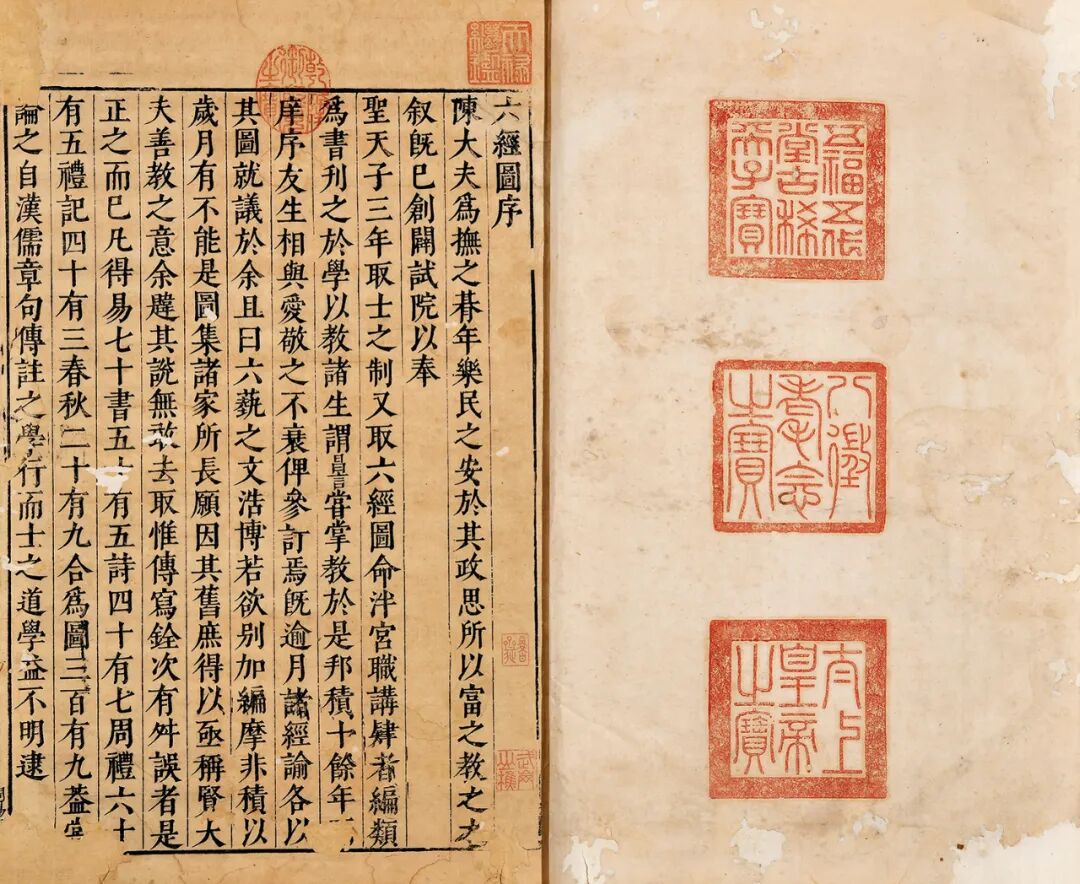 五福五代
堂古稀
天子寶
八徵
耄念
之寶
太上
皇帝
之寶
天祿
繼鑑
乾隆
御覽
之寶
六經圖序
陳大夫爲撫之朞年樂民之安於其政思所以富之教之
叙旣已創闢試院以奉
聖天子三年取士之制又取六經圖命泮宮職講肄者編類
爲書刊之於學以教諸生謂昌言嘗掌教於是邦積十餘年
庠序友生相與愛敬之不衰俾參訂焉旣逾月諸經論各以
其圖就議於余且曰六藝之文浩博若欲别加編摩非積以
歲月有不能是圖集諸家所長願因其舊庶得以亟稱賢大
夫善教之意余韙其說無敢去取惟傳寫銓次有舛誤者是
正之而已凡得易七十書五十有五詩四十有七周禮六十
有五禮記四十有三春秋二十有九合爲圖三百有九葢嘗
論之自漢儒章句傳註之學行而士之道學益不明逮